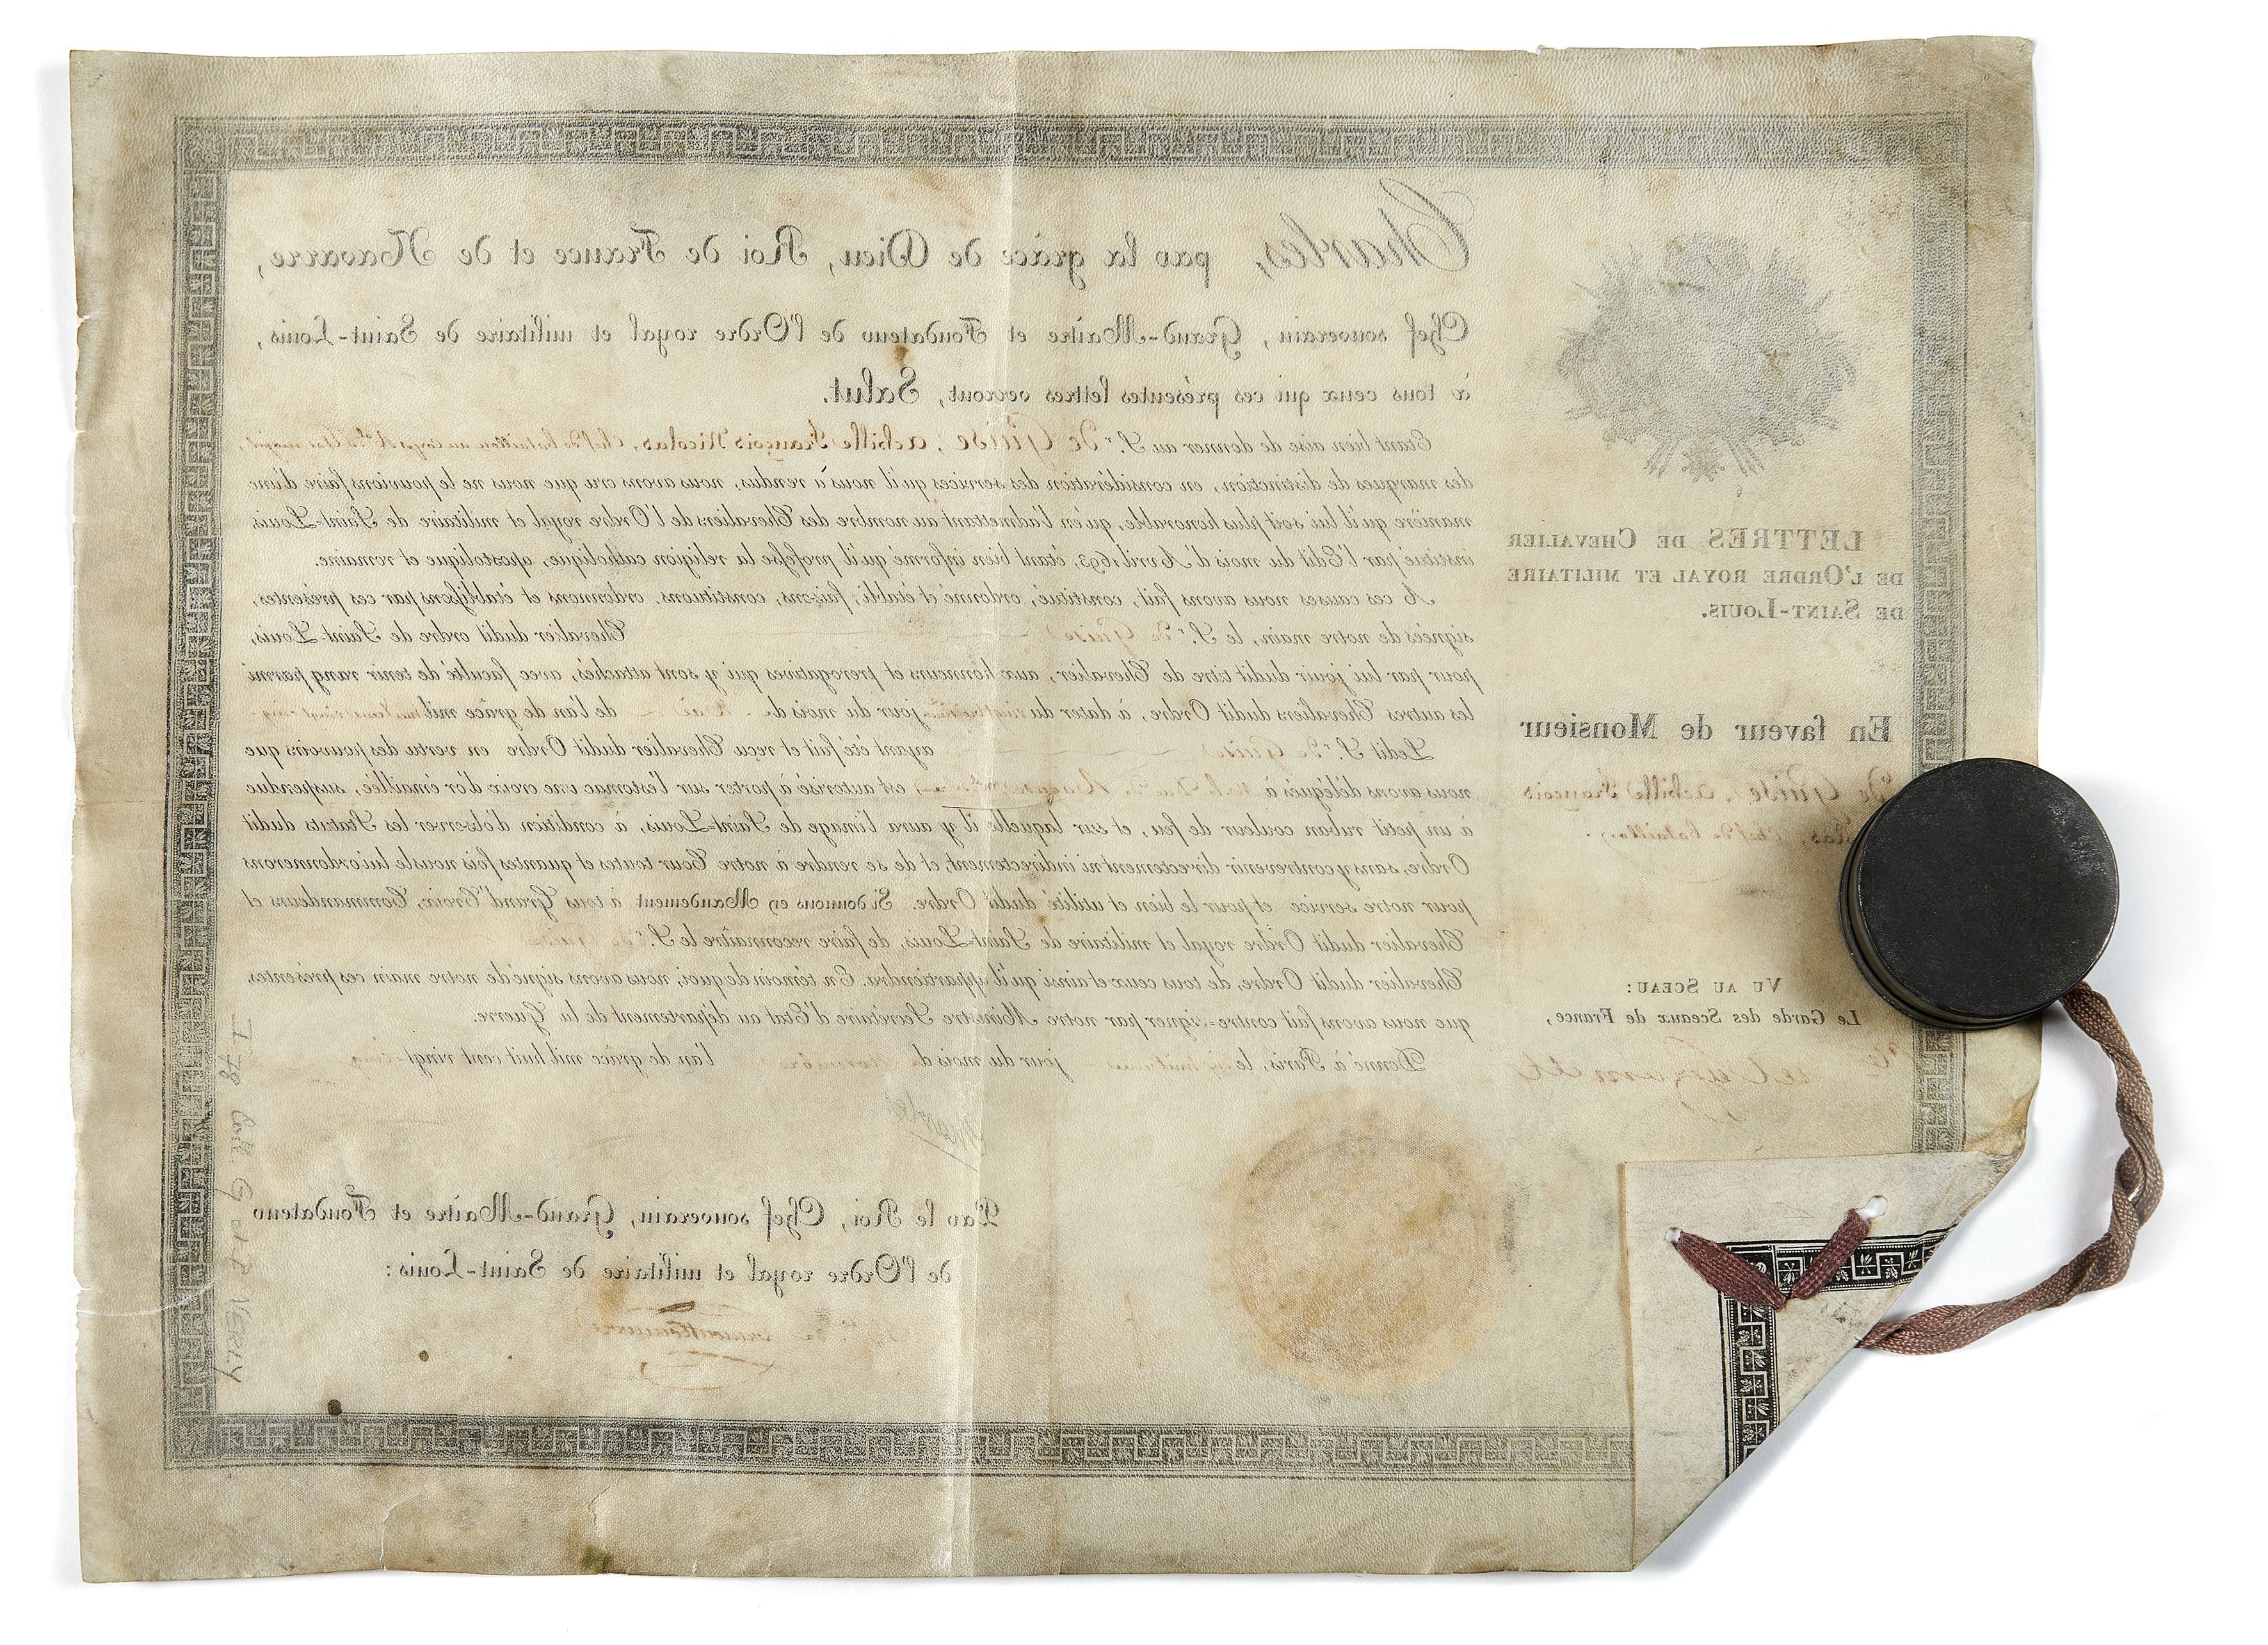 LETTRES DE CHEVALIER
DE L'ORDRE ROYAL ET MILITAIRE
DE SAINT-LOUIS.
En faveur de Monsieur
De Guise, achille François
Chef de bataillon
VU AU SCEAU:
Le Garde des Sceaux de France,
Charles, par la grâce de Dieu, Roi de France et de Navarre,
Chef souverain, Grand-Maître et Fondateur de l'Ordre royal et militaire de Saint-Louis,
à tous ceux qui ces présentes lettres verront, Salut.
Etant bien aise de donner au S.r De Guise, achille François Nicolas, Chef de bataillon au corps
des marques de distinction, en considération des services qu'il nous a rendus, nous avons cru que nous ne le pouvions faire d'une
manière qu'il lui soit plus honorable, qu'en l'admettant au nombre des Chevaliers de l'Ordre royal et militaire de Saint-Louis,
institué par l'Edit du mois d'Avril 1693, étant bien informé qu'il professe la religion catholique, apostolique et romaine.
A ces causes nous avons fait, constitué, ordonné et établi; faisons, constituons, ordonnons et établissons par ces présentes,
signées de notre main, le S.r De Guise Chevalier dudit ordre de Saint-Louis,
pour par lui jouir dudit titre de Chevalier, aux honneurs et prerogatives qui y sont attachés, avec faculté de tenir rang parmi
les autres Chevaliers dudit Ordre, à dater du vingt jour du mois de Mai de l'an de grâce mil huit cent vingt-cinq
Ledit S.r De Guise ayant été fait et reçu Chevalier dudit Ordre en vertu des pouvoirs que
nous avons délégués à est autorisé à porter sur l'estomac une croix d'or émaillée, suspendue
à un petit ruban couleur de feu, et sur laquelle il y aura l'image de Saint-Louis, à condition d'observer les Statuts dudit
Ordre, sans y contrevenir directement ni indirectement, et de se rendre à notre Cour toutes et quantes fois nous le lui ordonnerons
pour notre service et pour le bien et utilité dudit Ordre. Si donnons en Mandement à tous Grand'Croix, Commandeurs et
Chevalier dudit Ordre royal et militaire de Saint-Louis, de faire reconnaître le S.r De Guise
Chevalier dudit Ordre, de tous ceux et ainsi qu'il appartiendra. En témoin de quoi, nous avons signé de notre main ces présentes,
que nous avons fait contre-signer par notre Ministre Secrétaire d'Etat au département de la Guerre.
Donné à Paris, le jour du mois de l'an de grâce mil huit cent vingt-cinq
Charles
Par le Roi, Chef souverain, Grand-Maître et Fondateur
de l'Ordre royal et militaire de Saint-Louis:
I 78 Coll. G VERLY